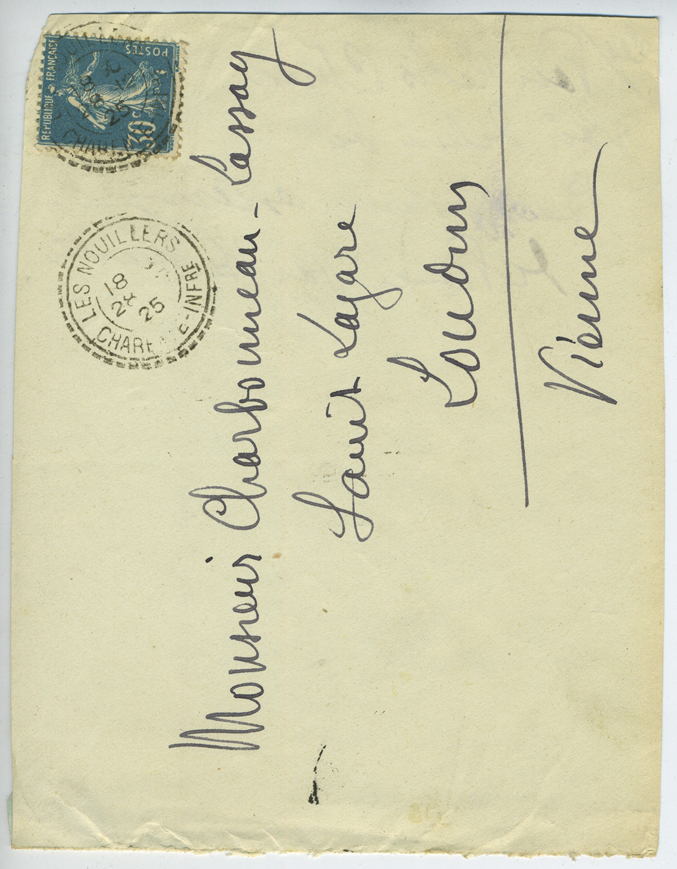 RÉPUBLIQUE FRANÇAISE
POSTES
30c
LES NOUILLERS
18
25
CHARENTE-INFRE
Monsieur Charbonneau-Lassay
Saint Lazare
Loudun
Vienne